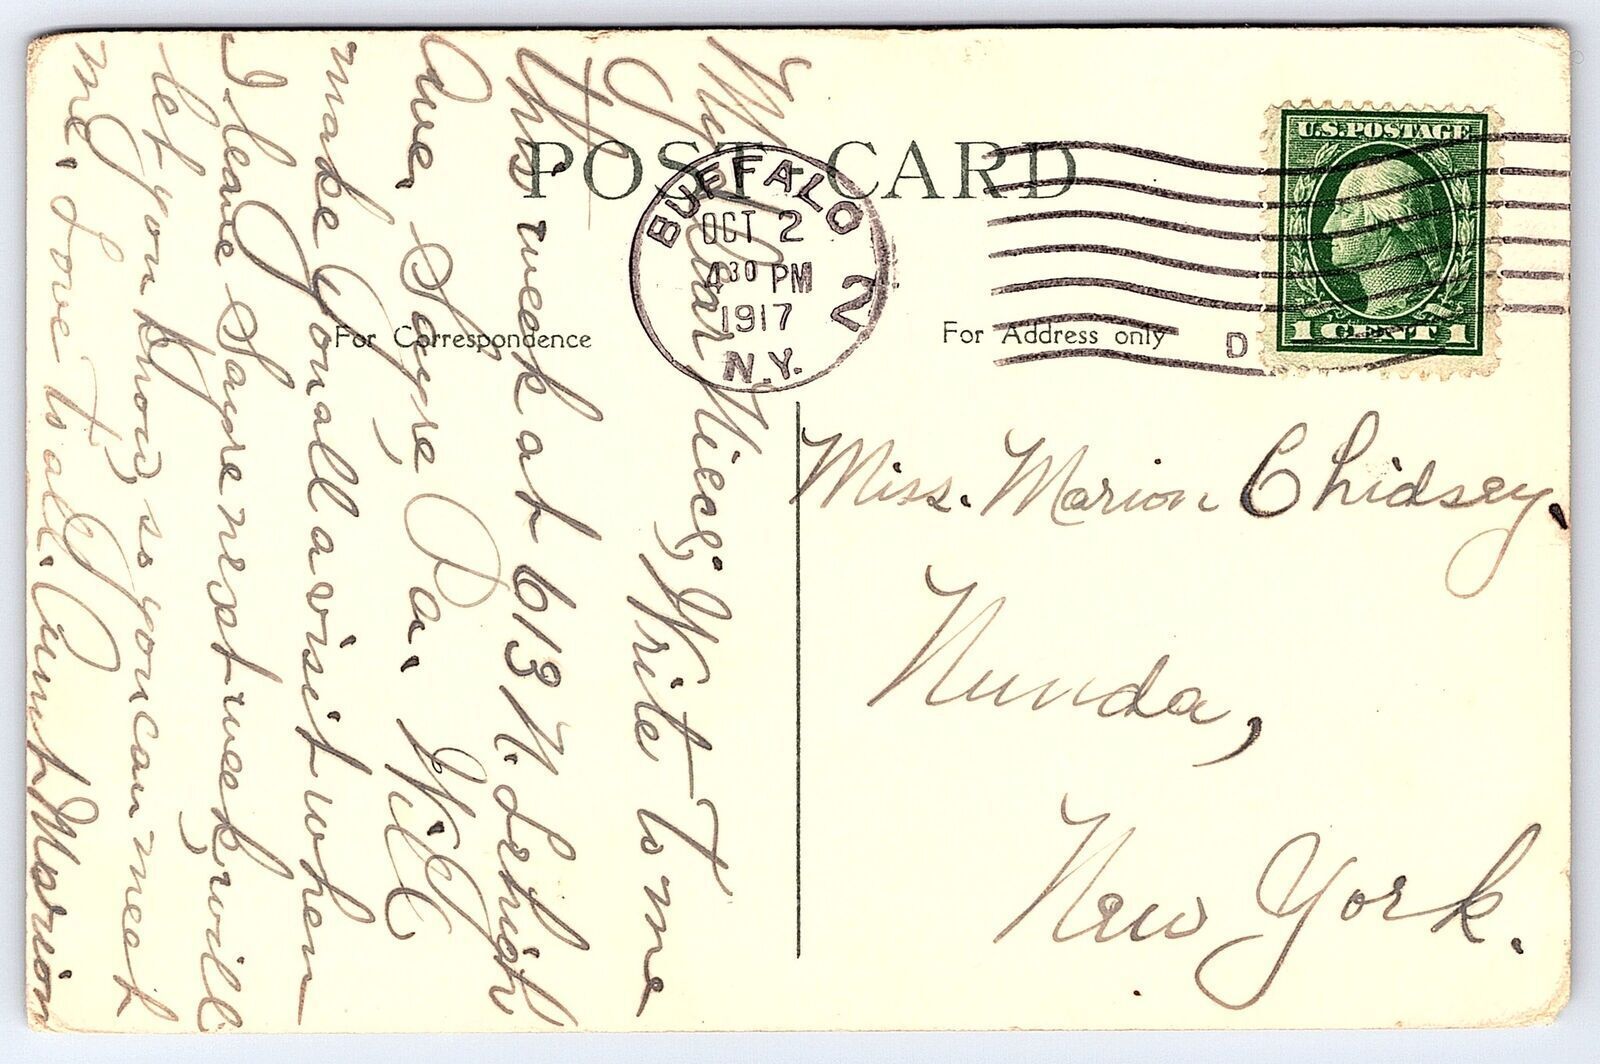 POST CARD
For Correspondence
For Address only
BUFFALO
OCT 2
4 30 PM
1917
N.Y.
2
D
U.S. POSTAGE
1 CENT 1
My Dear Niece;
Write to me
this week at 613 N. Lehigh
Ave. Sayre Pa. Will
make You all a visit when
I leave Sayre next week, will
let you know, so you can meet
me. Love to all. Aunt Marion
Miss. Marion Chidsey.
Nunda,
New York.